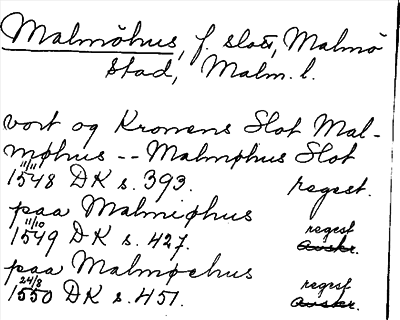 Malmöhus, f. slott, Malmö
stad, Malm. l.
vort og Kronens Slot Mal-
møhus -- Malmøhus Slot
11/11 1548 DK s. 393. regest.
paa Malmiøhus
11/10 1549 DK s. 427. regest avskr.
paa Malmøehus
24/8 1550 DK s. 451. regest avskr.